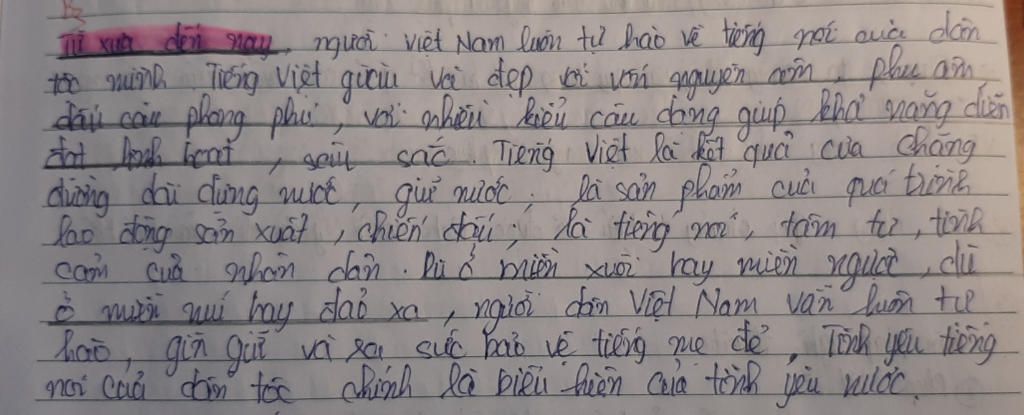 Từ xưa đến nay, người Việt Nam luôn tự hào về tiếng nói của dân
tộc mình. Tiếng Việt giàu và đẹp với vốn nguyên âm, phụ âm
dấu câu phong phú, với nhiều kiểu câu dạng giúp khả năng diễn
đạt linh hoạt, sâu sắc. Tiếng Việt là kết quả của chặng
đường dài dựng nước, giữ nước; là sản phẩm của quá trình
lao động sản xuất, chiến đấu; là tiếng nói, tâm tư, tình
cảm của nhân dân. Dù ở miền xuôi hay miền ngược, dù
ở miền núi hay đảo xa, người dân Việt Nam vẫn luôn tự
hào, gìn giữ và ra sức bảo vệ tiếng mẹ đẻ. Tình yêu tiếng
nói của dân tộc chính là biểu hiện của tình yêu nước.